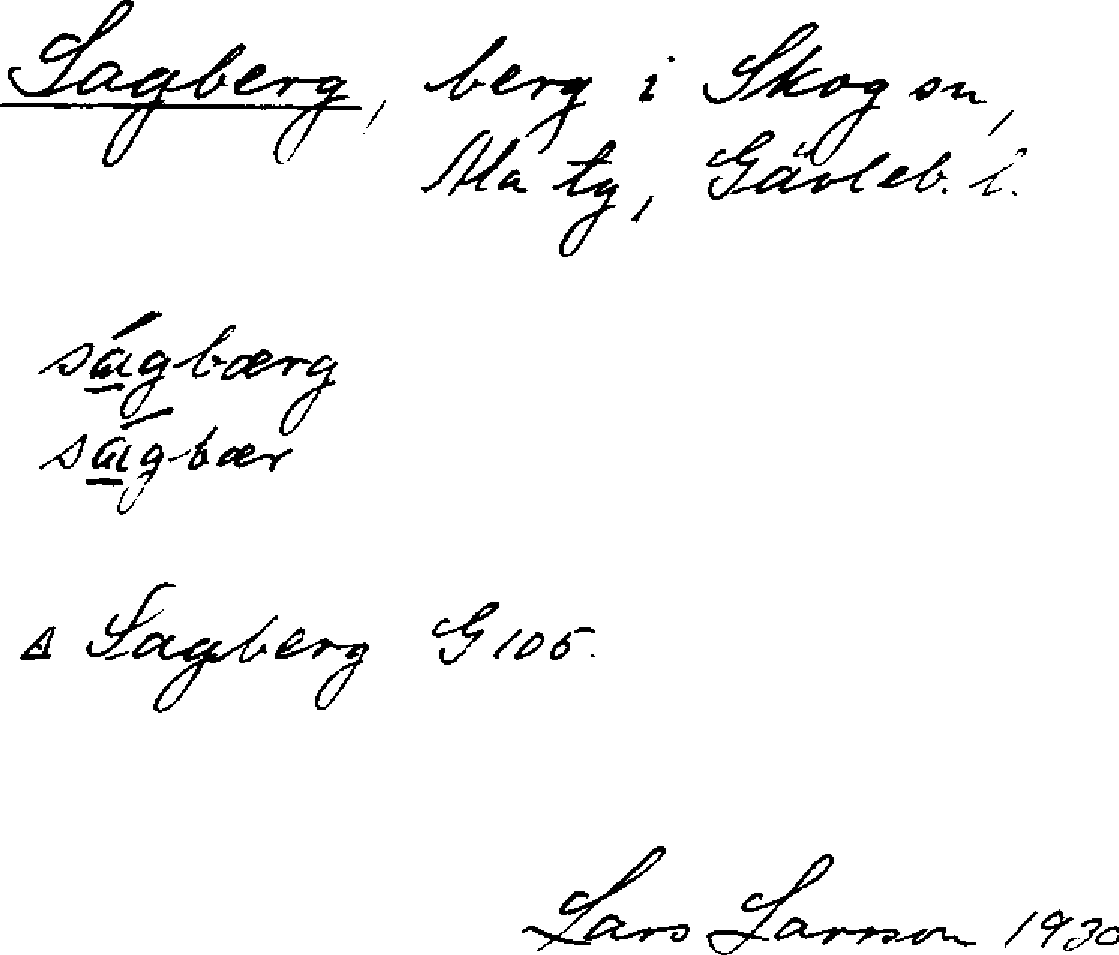 Sagberg, berg i Skog sn,
Ala tg, Gävleb. l.
ságbærg
ságbær
∆ Sagberg G 105.
Lars Larsson 1930